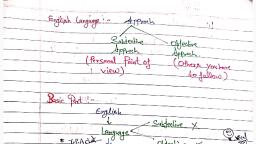 English Language :- Approach
Subjective Objective
Approach Approach
(Personal Point of (Others you have
view) to follow)
Basic Part :-
English
Language Subjective X